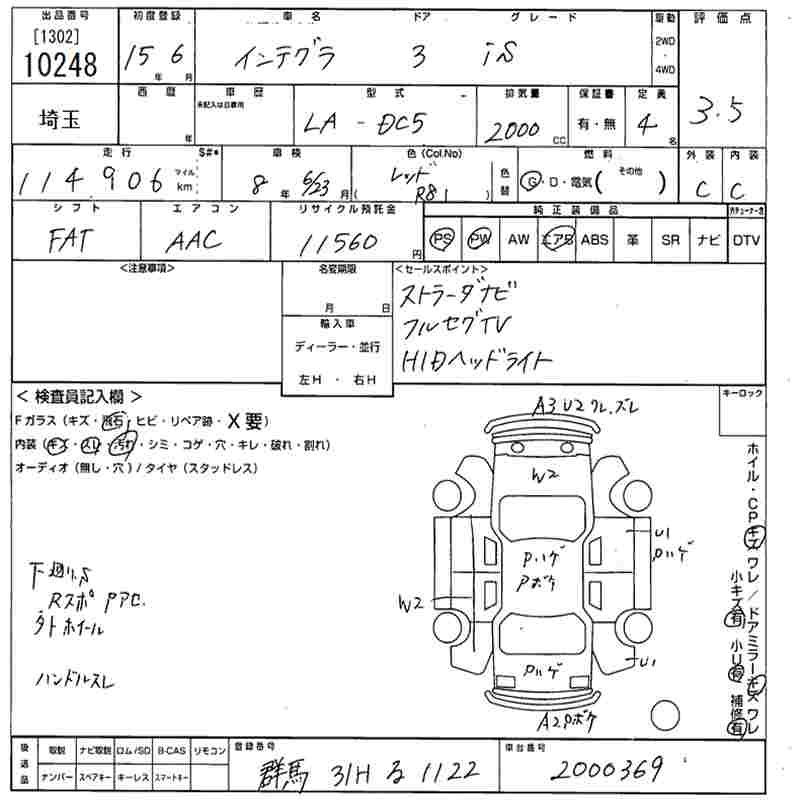 出品番号 初度登録 車名 ドア グレード 駆動 評価点
[1302]
10248 15年 6月 インテグラ 3 iS 2WD・4WD 3.5
埼玉 西暦 年 車歴 未記入は自家用 型式 LA - DC5 排気量 2000cc 保証書 有・無 定員 4名
走行 S#* 車検 色(Col.No) 燃料 外装 内装
114,906 マイル km 8年 6/23月 (レッド R81) 色替 G・D・電気( その他 ) C C
シフト エアコン リサイクル預託金 純正装備品
FAT AAC 11560円 PS PW AW エアB ABS 革 SR ナビ DTV
<注意事項> 名変期限 <セールスポイント>
月 日 ストラーダナビ
輸入車 フルセグTV
ディーラー・並行 HIDヘッドライト
左H ・ 右H
< 検査員記入欄 > キーロック
Fガラス(キズ・飛石・ヒビ・リペア跡・X要)
内装(キズ・スレ・汚れ・シミ・コゲ・穴・キレ・破れ・割れ)
オーディオ(無し・穴)/タイヤ(スタッドレス)
A3 U2 ワレ.ズレ
W2
U1
Pハゲ
Pハゲ
Pボケ
W2
U1
Pハゲ
A2Pボケ
下廻りS
Rスポ PAC.
外トホイール
ハンドルスレ
ホイル・CPキズワレ/ドアミラーキズワレ
小キズ有 小U有 補修有
後送品 取説 ナビ取説 ロム/SD B-CAS リモコン 登録番号 車台番号
ナンバー スペアキー キーレス スマートキー 群馬 31H る 1122 2000369